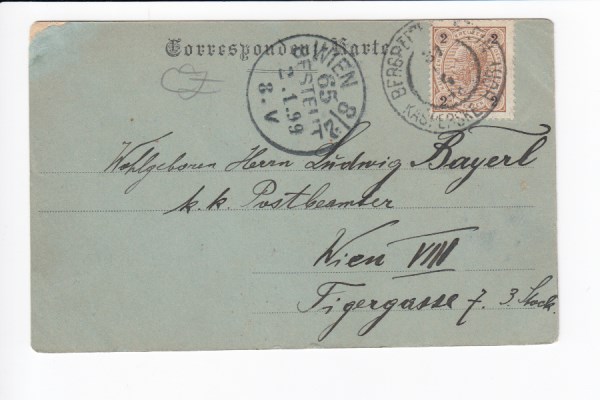 Correspondenz-Karte
WIEN 8/2
65
BESTELLT
2.1.99
8.V
BERGREICHENSTEIN
KAŠPERSKÉ HORY
31
2 2
2 2
Wohlgeboren Herrn Ludwig Bayerl
k. k. Postbeamter
Wien VIII
Tigergasse 7. 3. Stock.